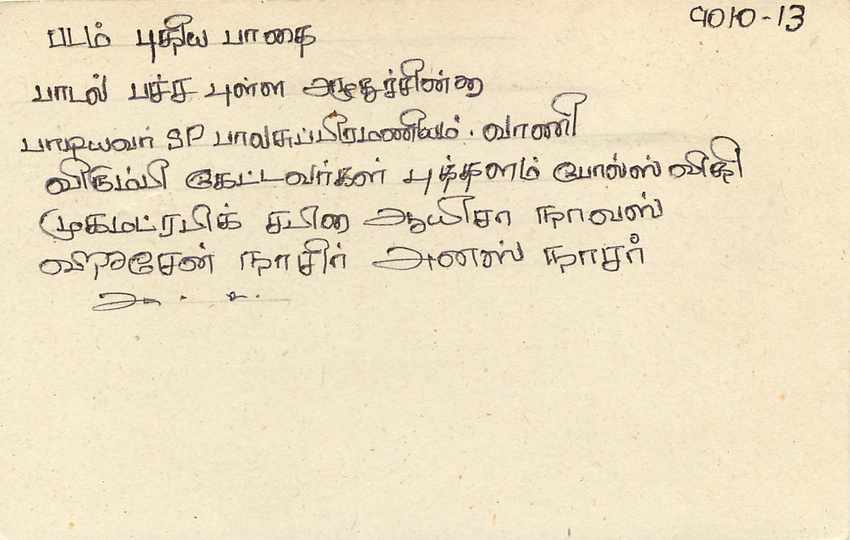 9010-13
படம் புதிய பாதை
பாடல் பச்ச புள்ள அழுதுச்சின்னா
பாடியவர் SP பாலசுப்பிரமணியம். வாணி
விரும்பி கேட்டவர்கள் புத்தளம் போல்ஸ் விதி
முகமட்ரபிக் சபினா ஆயிசா நாவஸ்
நாசிர் அனஸ் நாசர்